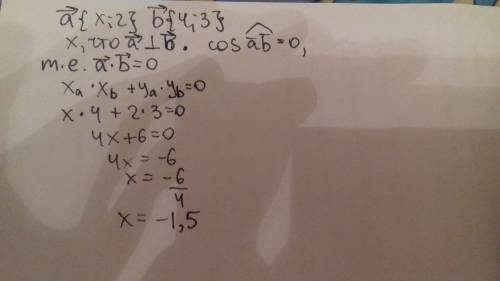 a⃗{x;2} b⃗{4;3}
x, что a⃗⊥b⃗. cos a⃗b⃗=0,
т.е. a⃗·b⃗=0
xₐ·x_b +yₐ·y_b=0
x·4 + 2·3=0
4x+6=0
4x = -6
x = -6/4
x = -1,5